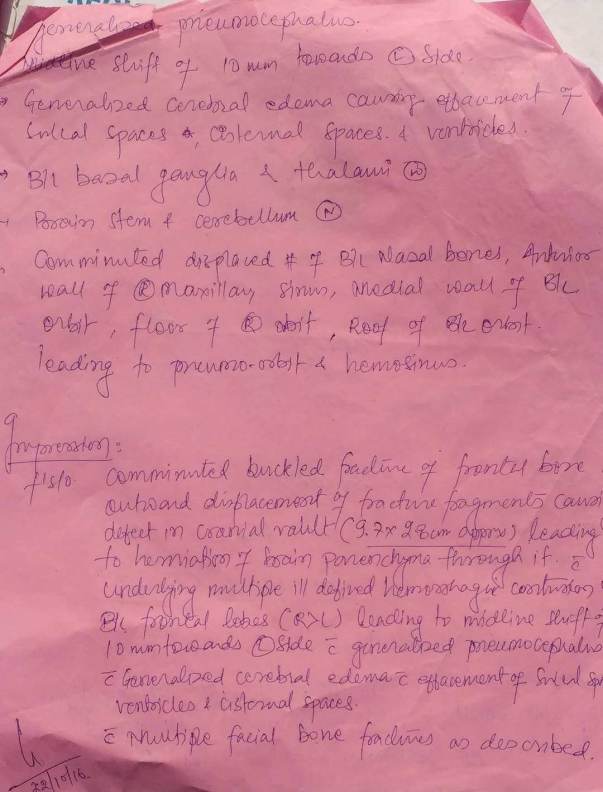 generalised pneumocephalus.
Midline shift of 10 mm towards Ⓛ side.
→ Generalised cerebral edema causing effacement of
Sulcal spaces, cisternal spaces & ventricles.
→ B/L basal ganglia & thalami Ⓝ
→ Brain stem & cerebellum Ⓝ
Comminuted displaced # of B/L Nasal bones, Anterior
wall of Ⓡ maxillary sinus, medial wall of B/L
orbit, floor of Ⓡ orbit, Roof of B/L orbit.
leading to pneumo-orbit & hemosinus.
Impression:
f/s/o comminuted buckled fracture of frontal bone
outward displacement of fracture fragments causi
defect in cranial vault (9.7x2.8cm approx) leading
to herniation of brain parenchyma through it. c̄
underlying multiple ill defined hemorrhagic contusion
B/L frontal lobes (R>L) leading to midline shift of
10 mm towards Ⓛ side c̄ generalised pneumocephalus
c̄ Generalised cerebral edema c̄ effacement of Sulcal sp
ventricles & cisternal spaces.
c̄ Multiple facial bone fractures as described.
22/10/16